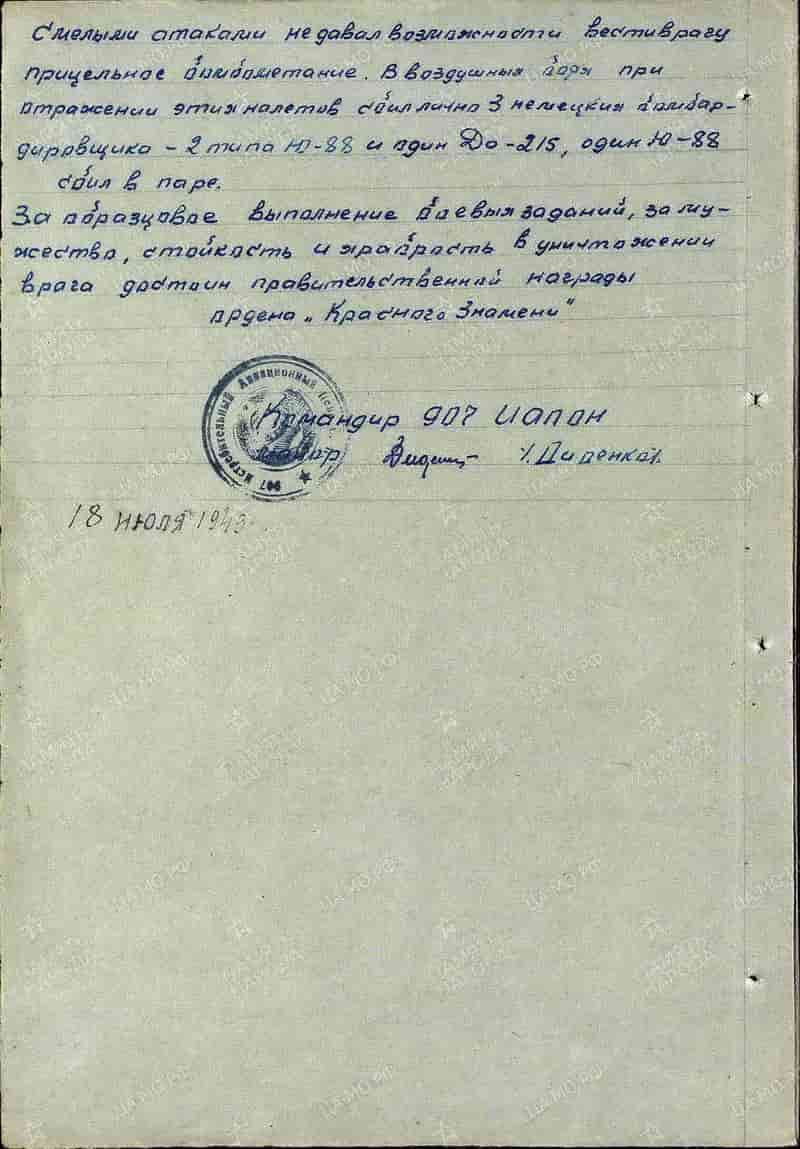 Смелыми атаками не давал возможности вести врагу
прицельное бомбометание. В воздушных боях при
отражении этих налетов сбил лично 3 немецких бомбар-
дировщика – 2 типа Ю-88 и один До-215, один Ю-88
сбил в паре.
За образцовое выполнение боевых заданий, за му-
жество, стойкость и храбрость в уничтожении
врага достоин правительственной награды
ордена „Красного Знамени"
907 Истребительный Авиационный
Командир 907 ИАПОН
майор
18 июля 1943
ЦАМО.РФ